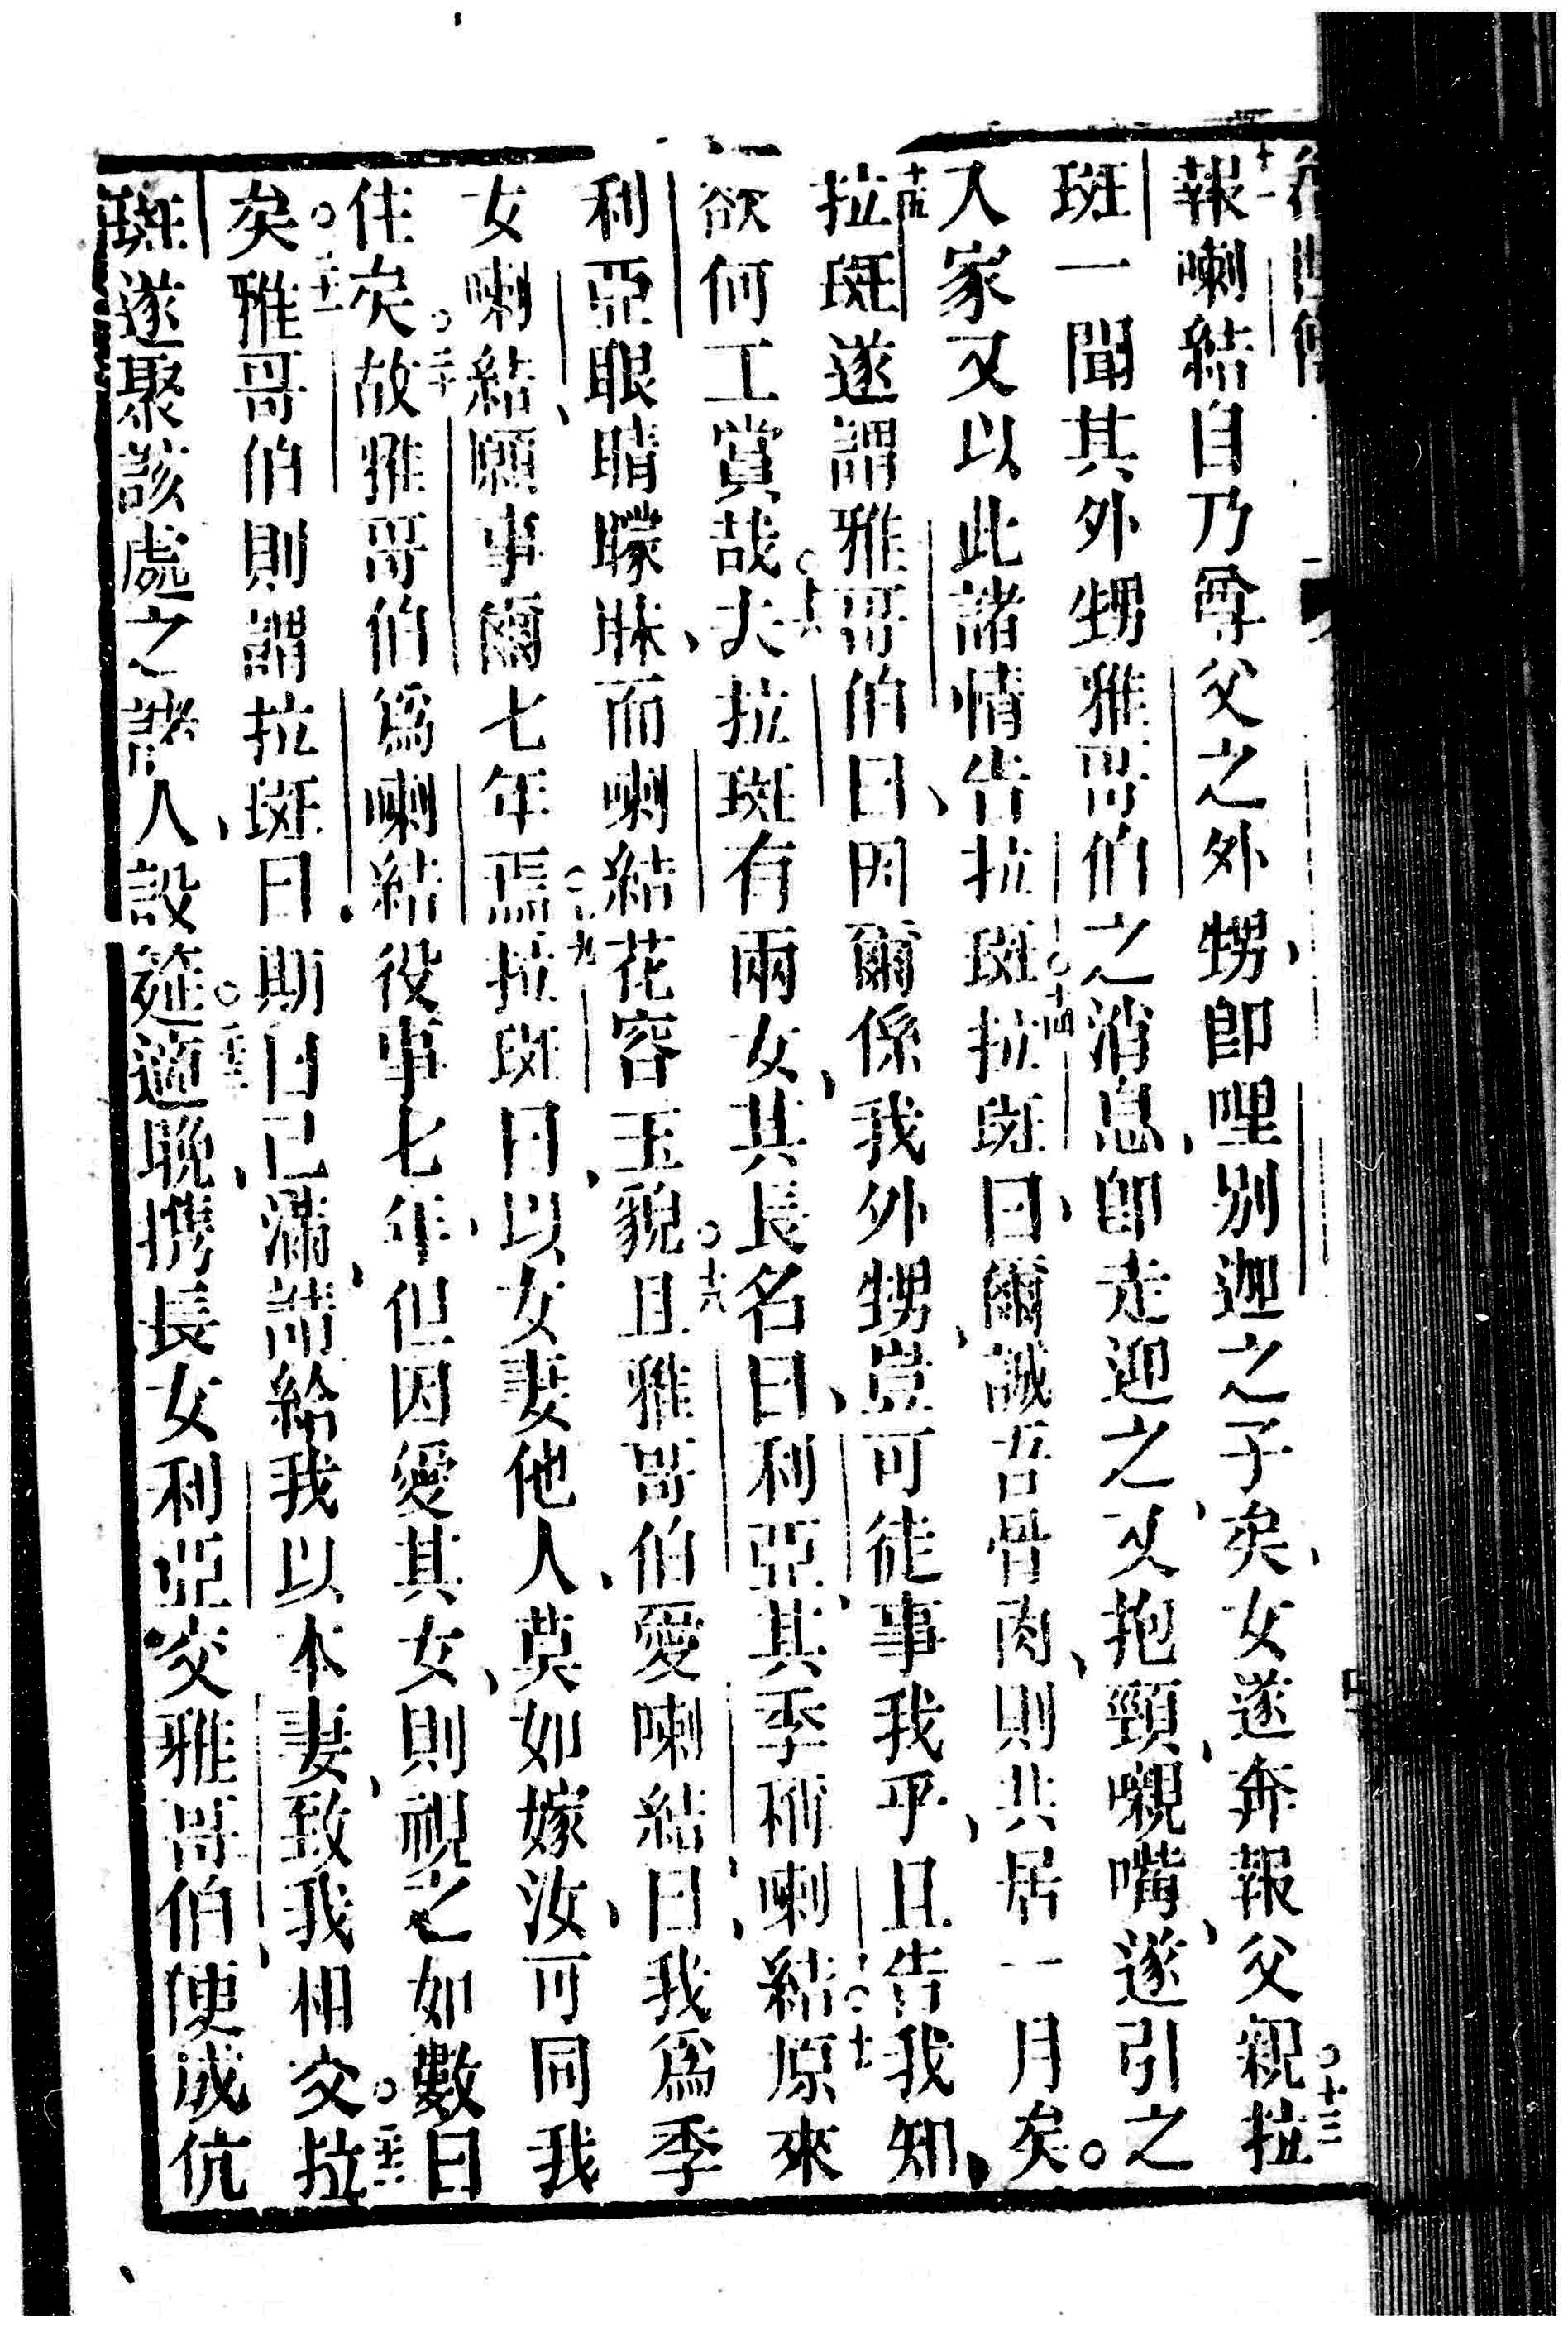 十二報喇結自乃尊父之外甥、卽哩別迦之子矣、女遂奔報父親○十三拉
班一聞其外甥雅哥伯之消息、卽走迎之、又抱頸、嚫嘴、遂引之
入家又以此諸情告拉斑○十四拉斑曰、爾誠吾骨肉、則共居一月矣。
十五拉斑遂謂雅哥伯曰、因爾係我外甥、豈可徒事我乎、且告我知、
欲何工賞哉○十六夫拉斑有兩女、其長名曰、利亞、其季稱喇結○十七原來
利亞眼睛矇眛、而喇結花容玉貌○十八且雅哥伯愛喇結、曰、我爲季
女喇結、願事爾七年焉○十九拉斑曰、以女妻他人、莫如嫁汝、可同我
住矣○二十故雅哥伯爲喇結役事七年、但因愛其女、則視之如數日
矣○二十一雅哥伯則謂拉斑曰、期日已滿、請給我以本妻、致我相交○二十二拉
斑遂聚該處之諸人、設筵○二十三適晚、携長女利亞交雅哥伯、便成伉